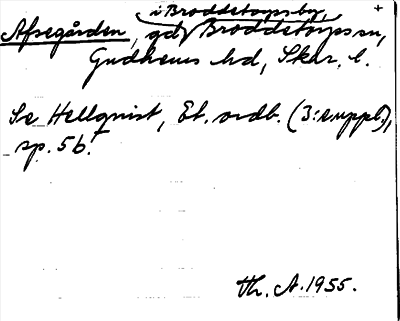 i Broddetorps by,
+
Afsegården, gd Broddetorps sn,
Gudhems hd, Skar. l.
Se Hellquist, Et. ordb. (3:e uppl.),
sp. 5 b.
Th. A. 1955.